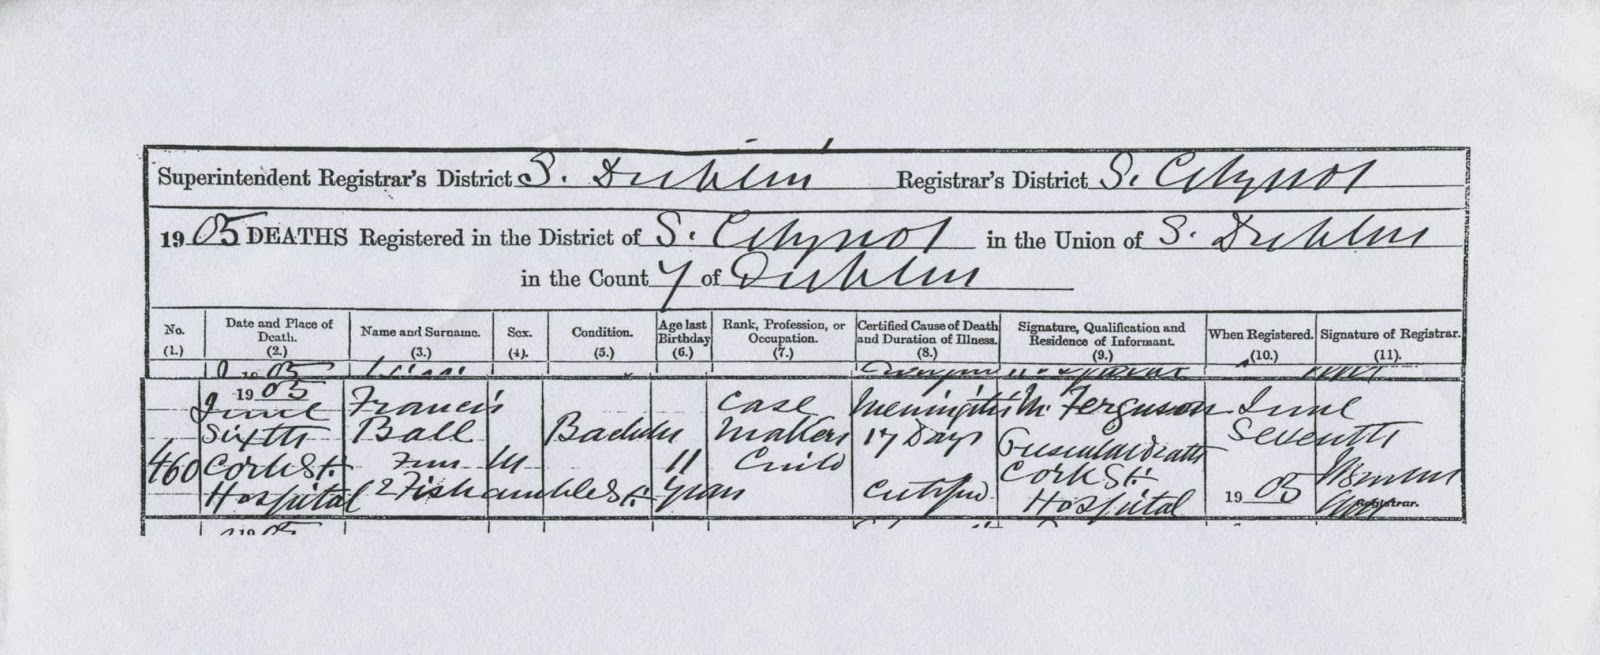 Superintendent Registrar's District S. Dublin Registrar's District S. City No 1
1905 DEATHS Registered in the District of S. City No 1 in the Union of S. Dublin
in the County of Dublin
No. (1.) Date and Place of Death. (2.) Name and Surname. (3.) Sex. (4). Condition. (5.) Age last Birthday (6.) Rank, Profession, or Occupation. (7.) Certified Cause of Death and Duration of Illness. (8.) Signature, Qualification and Residence of Informant. (9.) When Registered. (10.) Signature of Registrar. (11).
1905
June Francis Case Meningitis M. Ferguson June
Sixth Ball Bachelor Makers 17 Days Seventh
460 Cork St. From M 11 Child Cork St.
Hospital 2 Fishamble St. years Certified Hospital 1905 Registrar.
1905